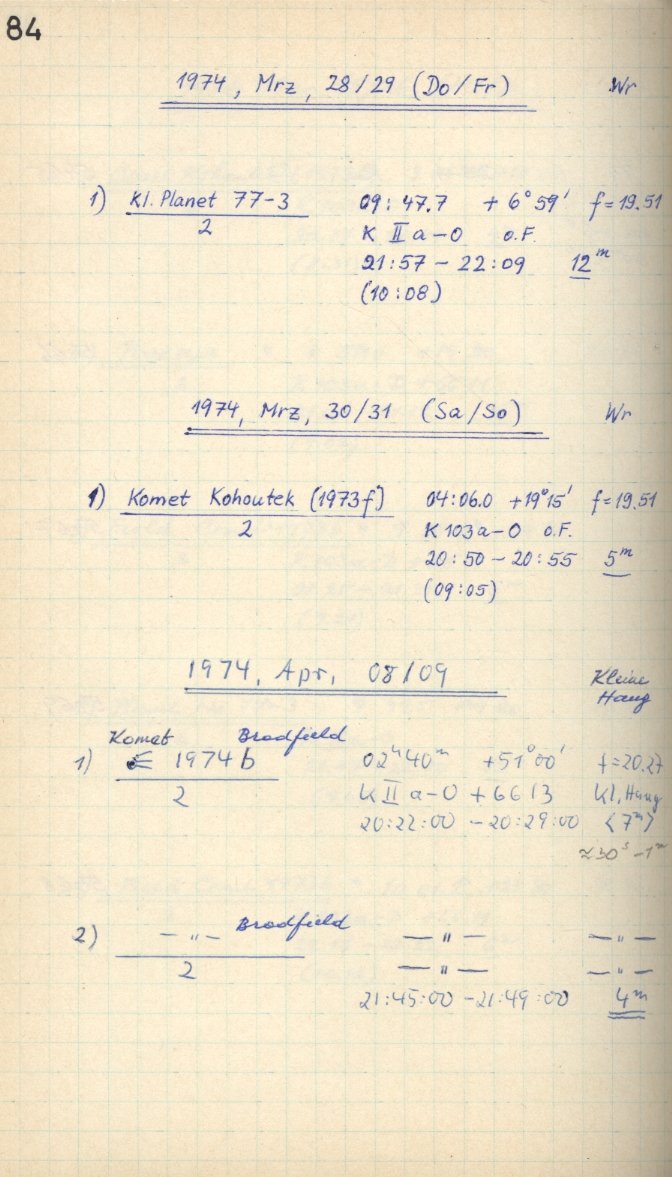 84
1974, Mrz, 28/29 (Do/Fr) Wr
1) Kl. Planet 77-3 09:47.7 +6°59' f=19.51
2 K II a-O o.F.
21:57 - 22:09 12m
(10:08)
1974, Mrz, 30/31 (Sa/So) Wr
1) Komet Kohoutek (1973f) 04:06.0 +19°15' f=19.51
2 K 103a-O o.F.
20:50 - 20:55 5m
(09:05)
1974, Apr, 08/09 Kleine
Haug
Komet Bradfield
1) 1974b 02h40m +51°00' f=20.27
2 K II a-O + GG13 Kl, Haug
20:22:00 - 20:29:00 <7m>
≈30s-1m
2) — " — Bradfield — " — — " —
2 — " — — " —
21:45:00 - 21:49:00 4m